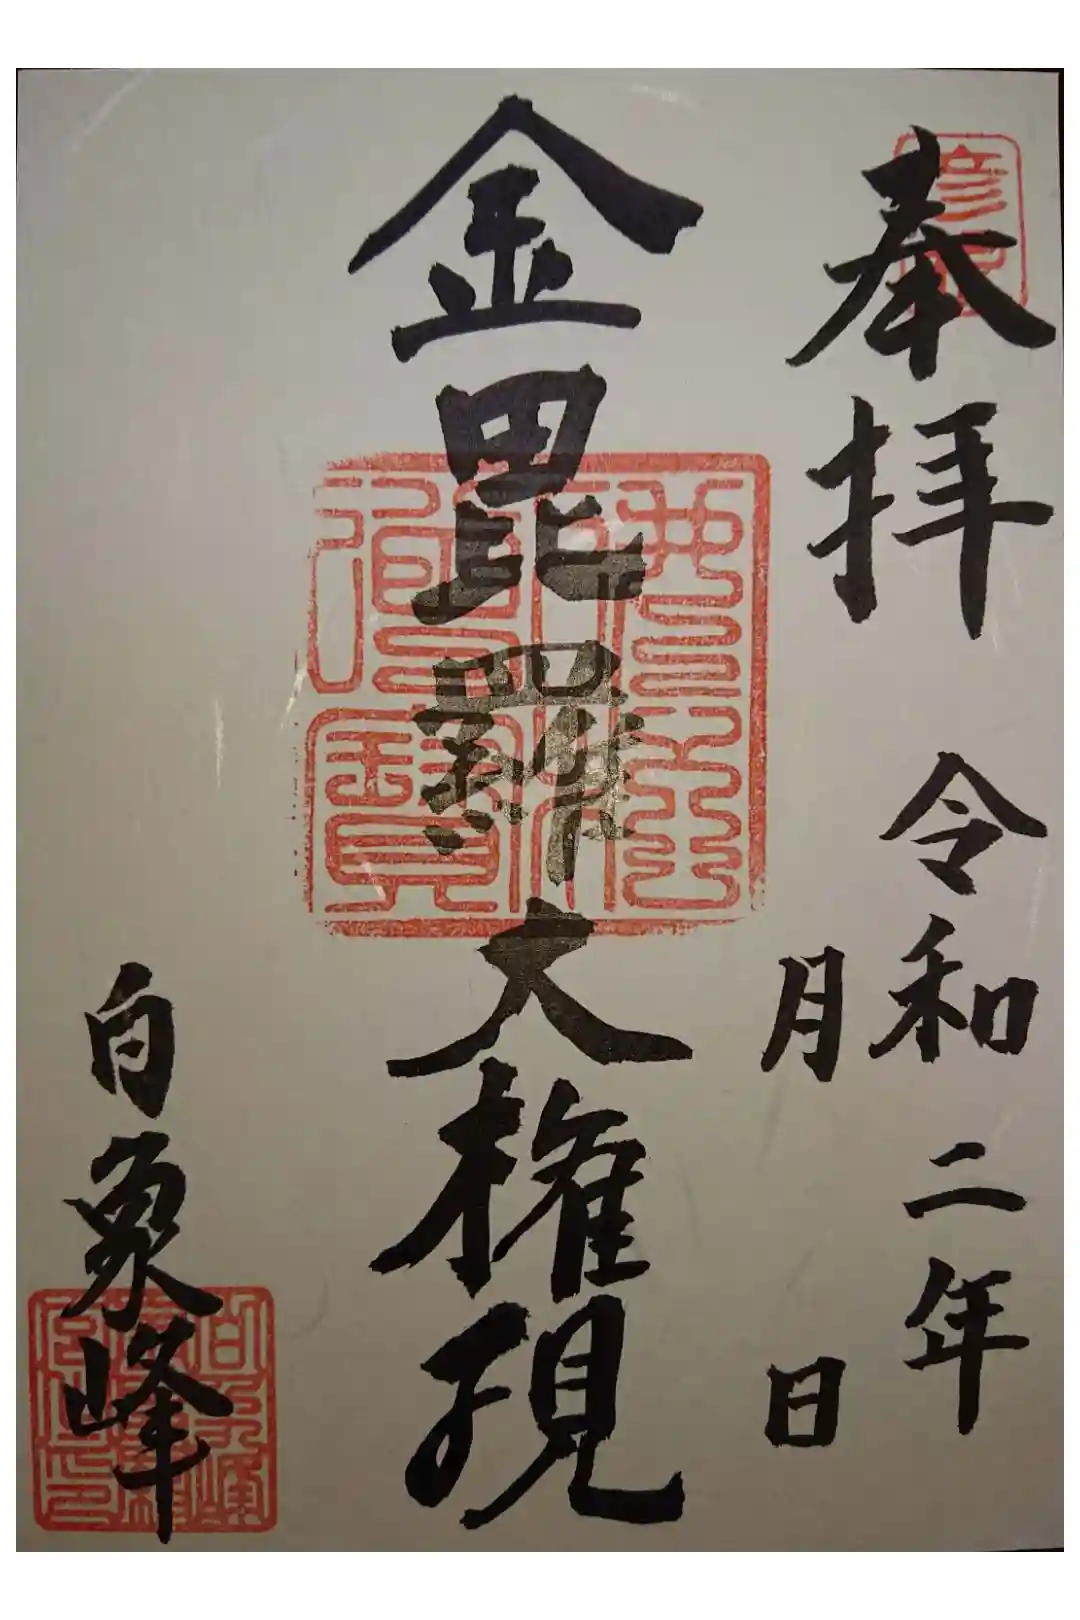 奉拝
令和二年
月　日
金毘羅大権現
白象峰